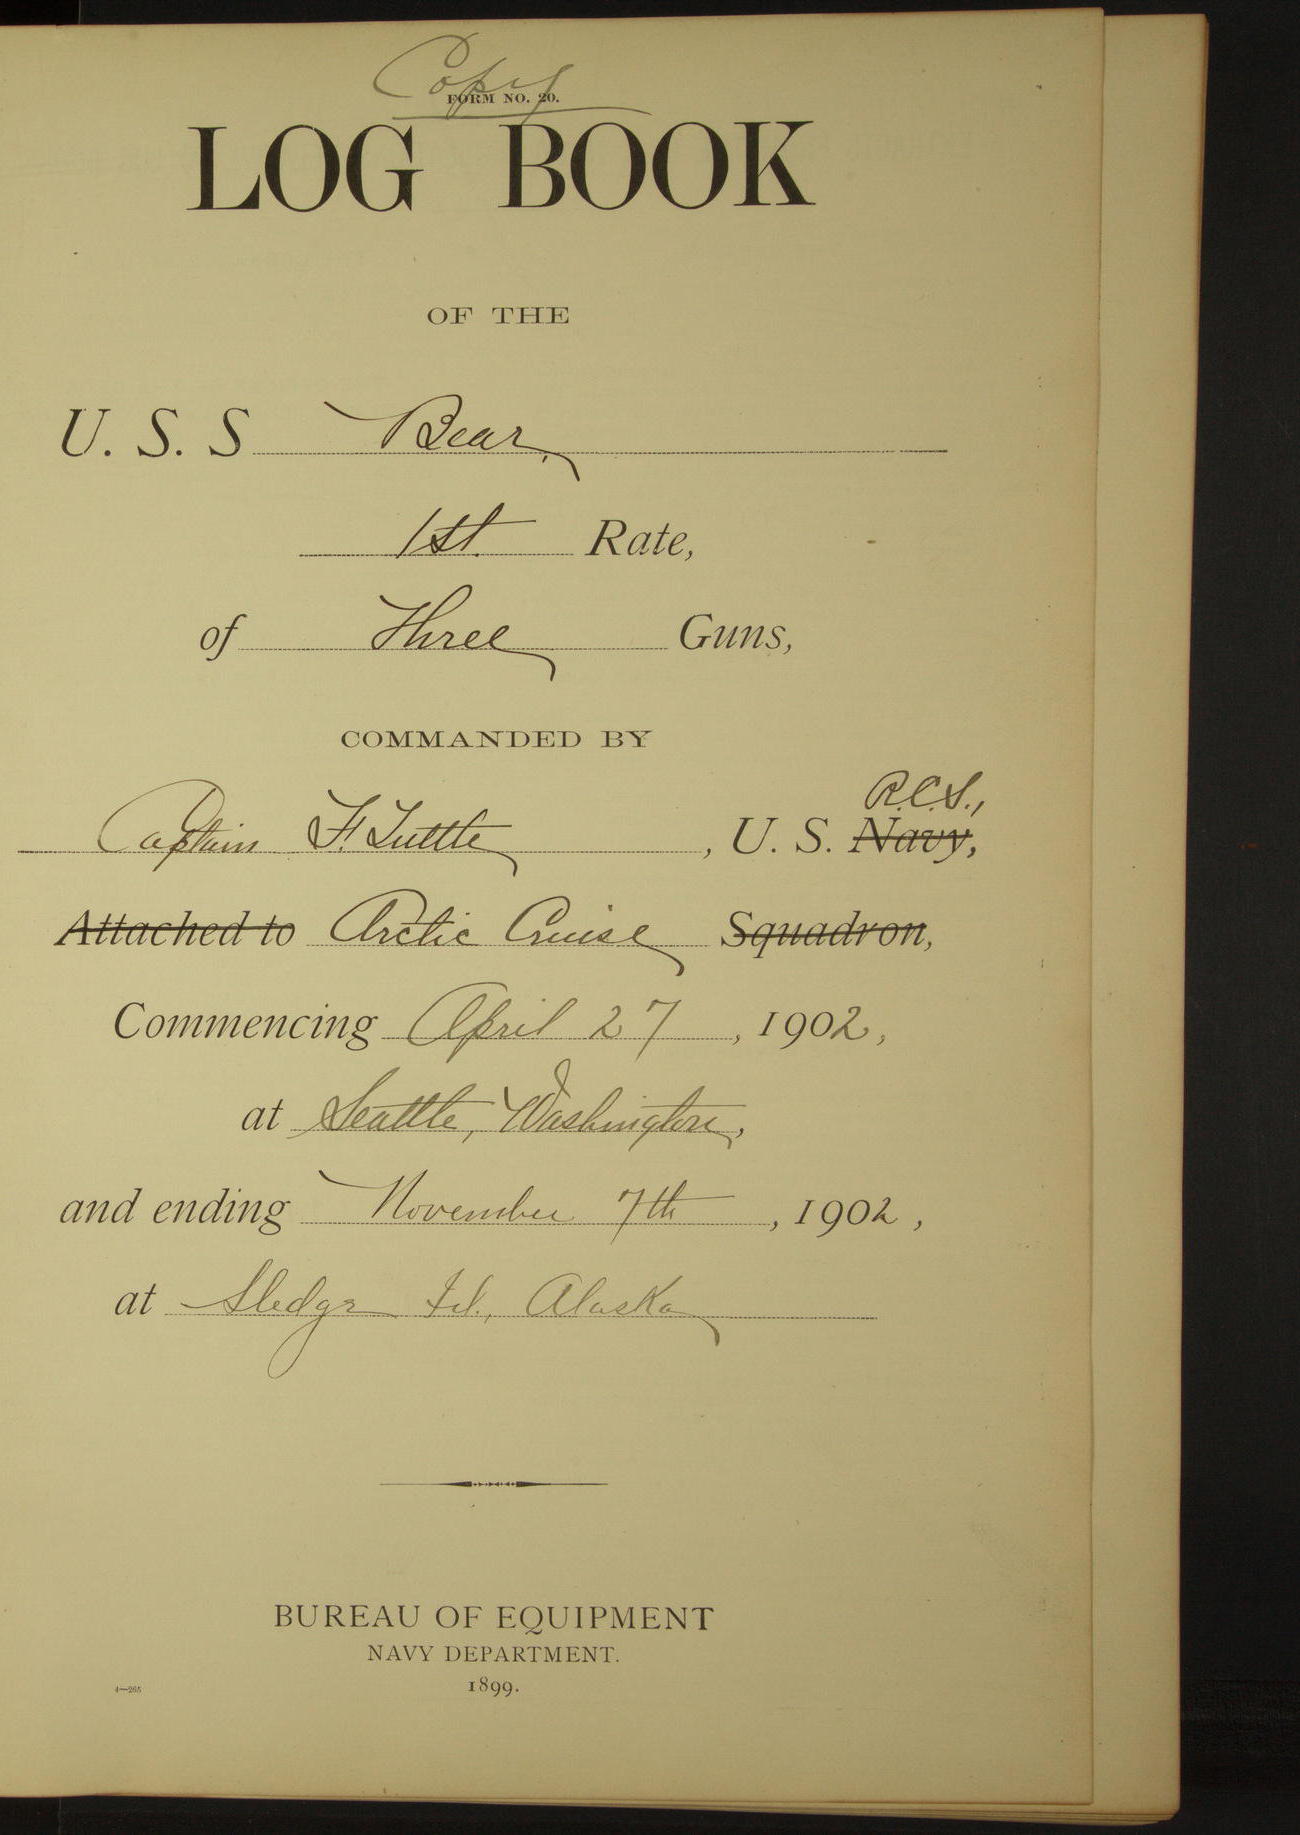 Copy
FORM NO. 20.
LOG BOOK
OF THE
U. S. S Bear,
1st. Rate,
of Three Guns,
COMMANDED BY
R.C.S.,
Captain F. Tuttle, U. S. Navy,
Attached to Arctic Cruise Squadron,
Commencing April 27, 1902,
at Seattle, Washington,
and ending November 7th, 1902,
at Sledge Id., Alaska
BUREAU OF EQUIPMENT
NAVY DEPARTMENT.
1899.
4—265